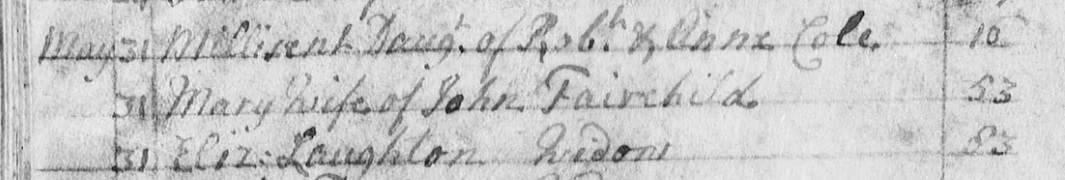 May 31 Millisent Daugr. of Robt. & Anne Cole. 16
31 Mary Wife of John Fairchild 53
31 Eliz: Laughton Widow 83